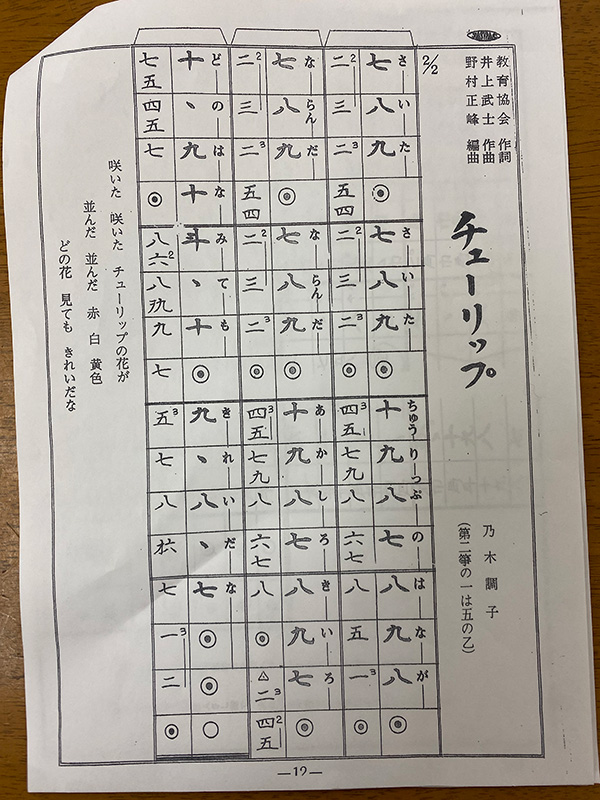 教育協会 作詞
井上武士 作曲
野村正峰 編曲
チューリップ
乃木調子
(第二箏の一は五の乙)
2/2
さいた さいた ちゅうりっぷの はなが
七 八 九 ◉ 七 八 九 ◉ 十 九 八 七 八 九 八 ◉
二2 三 二3 五四 二2 三 二3 ◉ 四3五 七九 八 六七 八 五 一3 ◉
ならんだ ならんだ あかしろ きいろ
七 八 九 ◉ 七 八 九 ◉ 十 九 八 七 八 九 七 ◉
二2 三 二3 五四 二2 三 二3 ◉ 四3五 七九 八 六七 八 ◉ △二3 四2五
どのはな みても きれいだな
十 、 九 十 斗 、 十 ◉ 九 、 八 、 七 ◉ ◉ ○
七五 四五 七 ◉ 八六2 八 九 七 五3 七 八 七 一3 二 ◉
咲いた 咲いた チューリップの花が
並んだ 並んだ 赤 白 黄色
どの花 見ても きれいだな
—19—